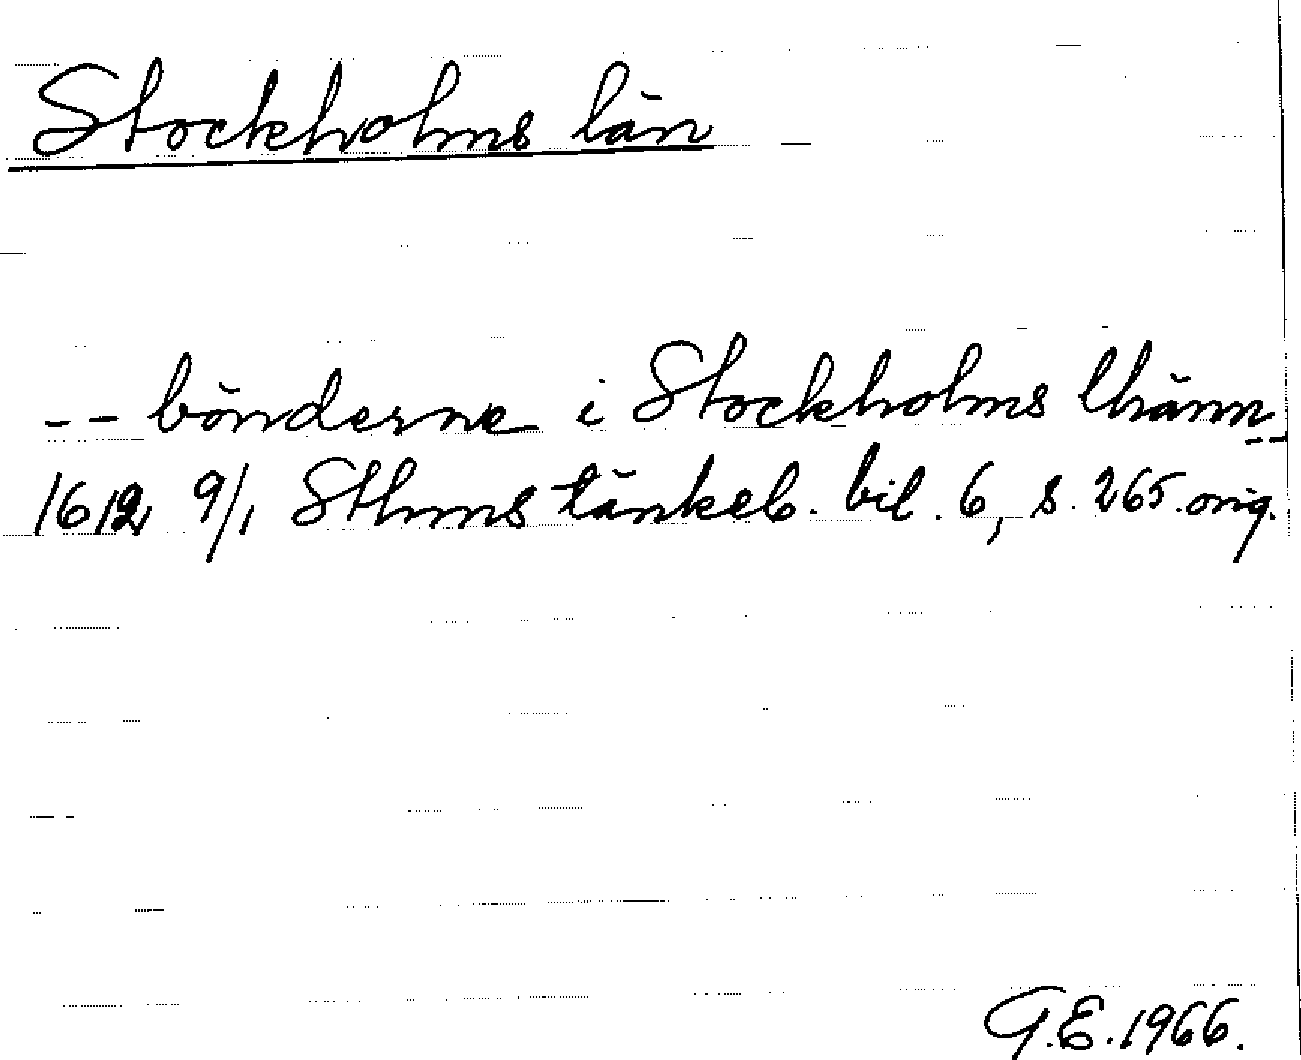 Stockholms län
-- bönderne i Stockholms lhänn --
1612 9/1 Sthms tänkeb. bil. 6, s. 265. orig.
G.E. 1966.